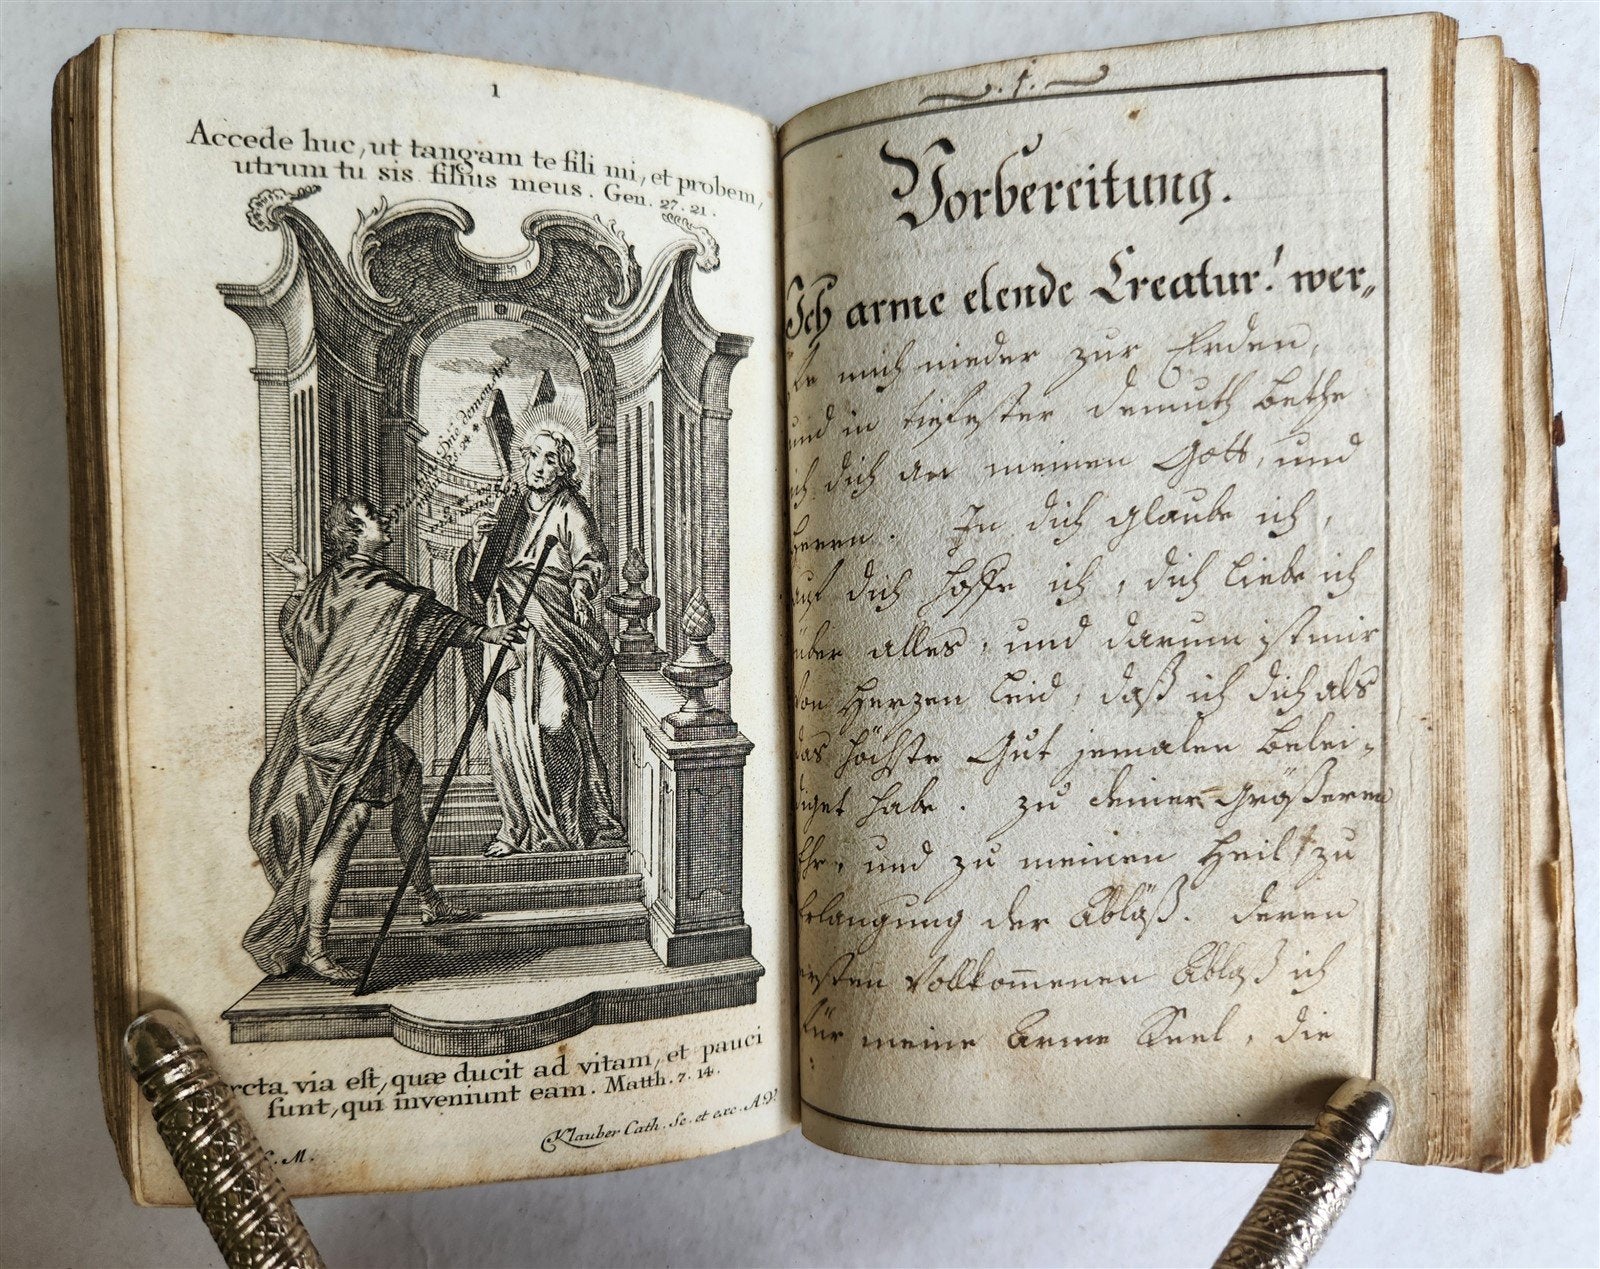 1
Accede huc, ut tangam te fili mi, et probem,
utrum tu sis filius meus. Gen. 27. 21.
rcta via est, quæ ducit ad vitam, et pauci
sunt, qui inveniunt eam. Matth. 7. 14.
Klauber Cath. Sc. et exc. A.V.
C. M.
. 1. 
Vorbereitung.
Ich arme elende Creatur! wer„
fe mich nieder zur Erden,
und in tiefester demuth bethe
ich dich an meinen Gott, und
Herrn. In dich glaube ich,
auf dich hoffe ich, dich liebe ich
über alles, und darum ist mir
von Herzen leid, daß ich dich als
das höchste Gut jemalen belei-
diget habe. zu deiner Größeren
Ehr, und zu meinen Heil, zu
Erlangung der Abläß. deren
ersten Vollkom̄enen Ablaß ich
für meine Arme Seel, die